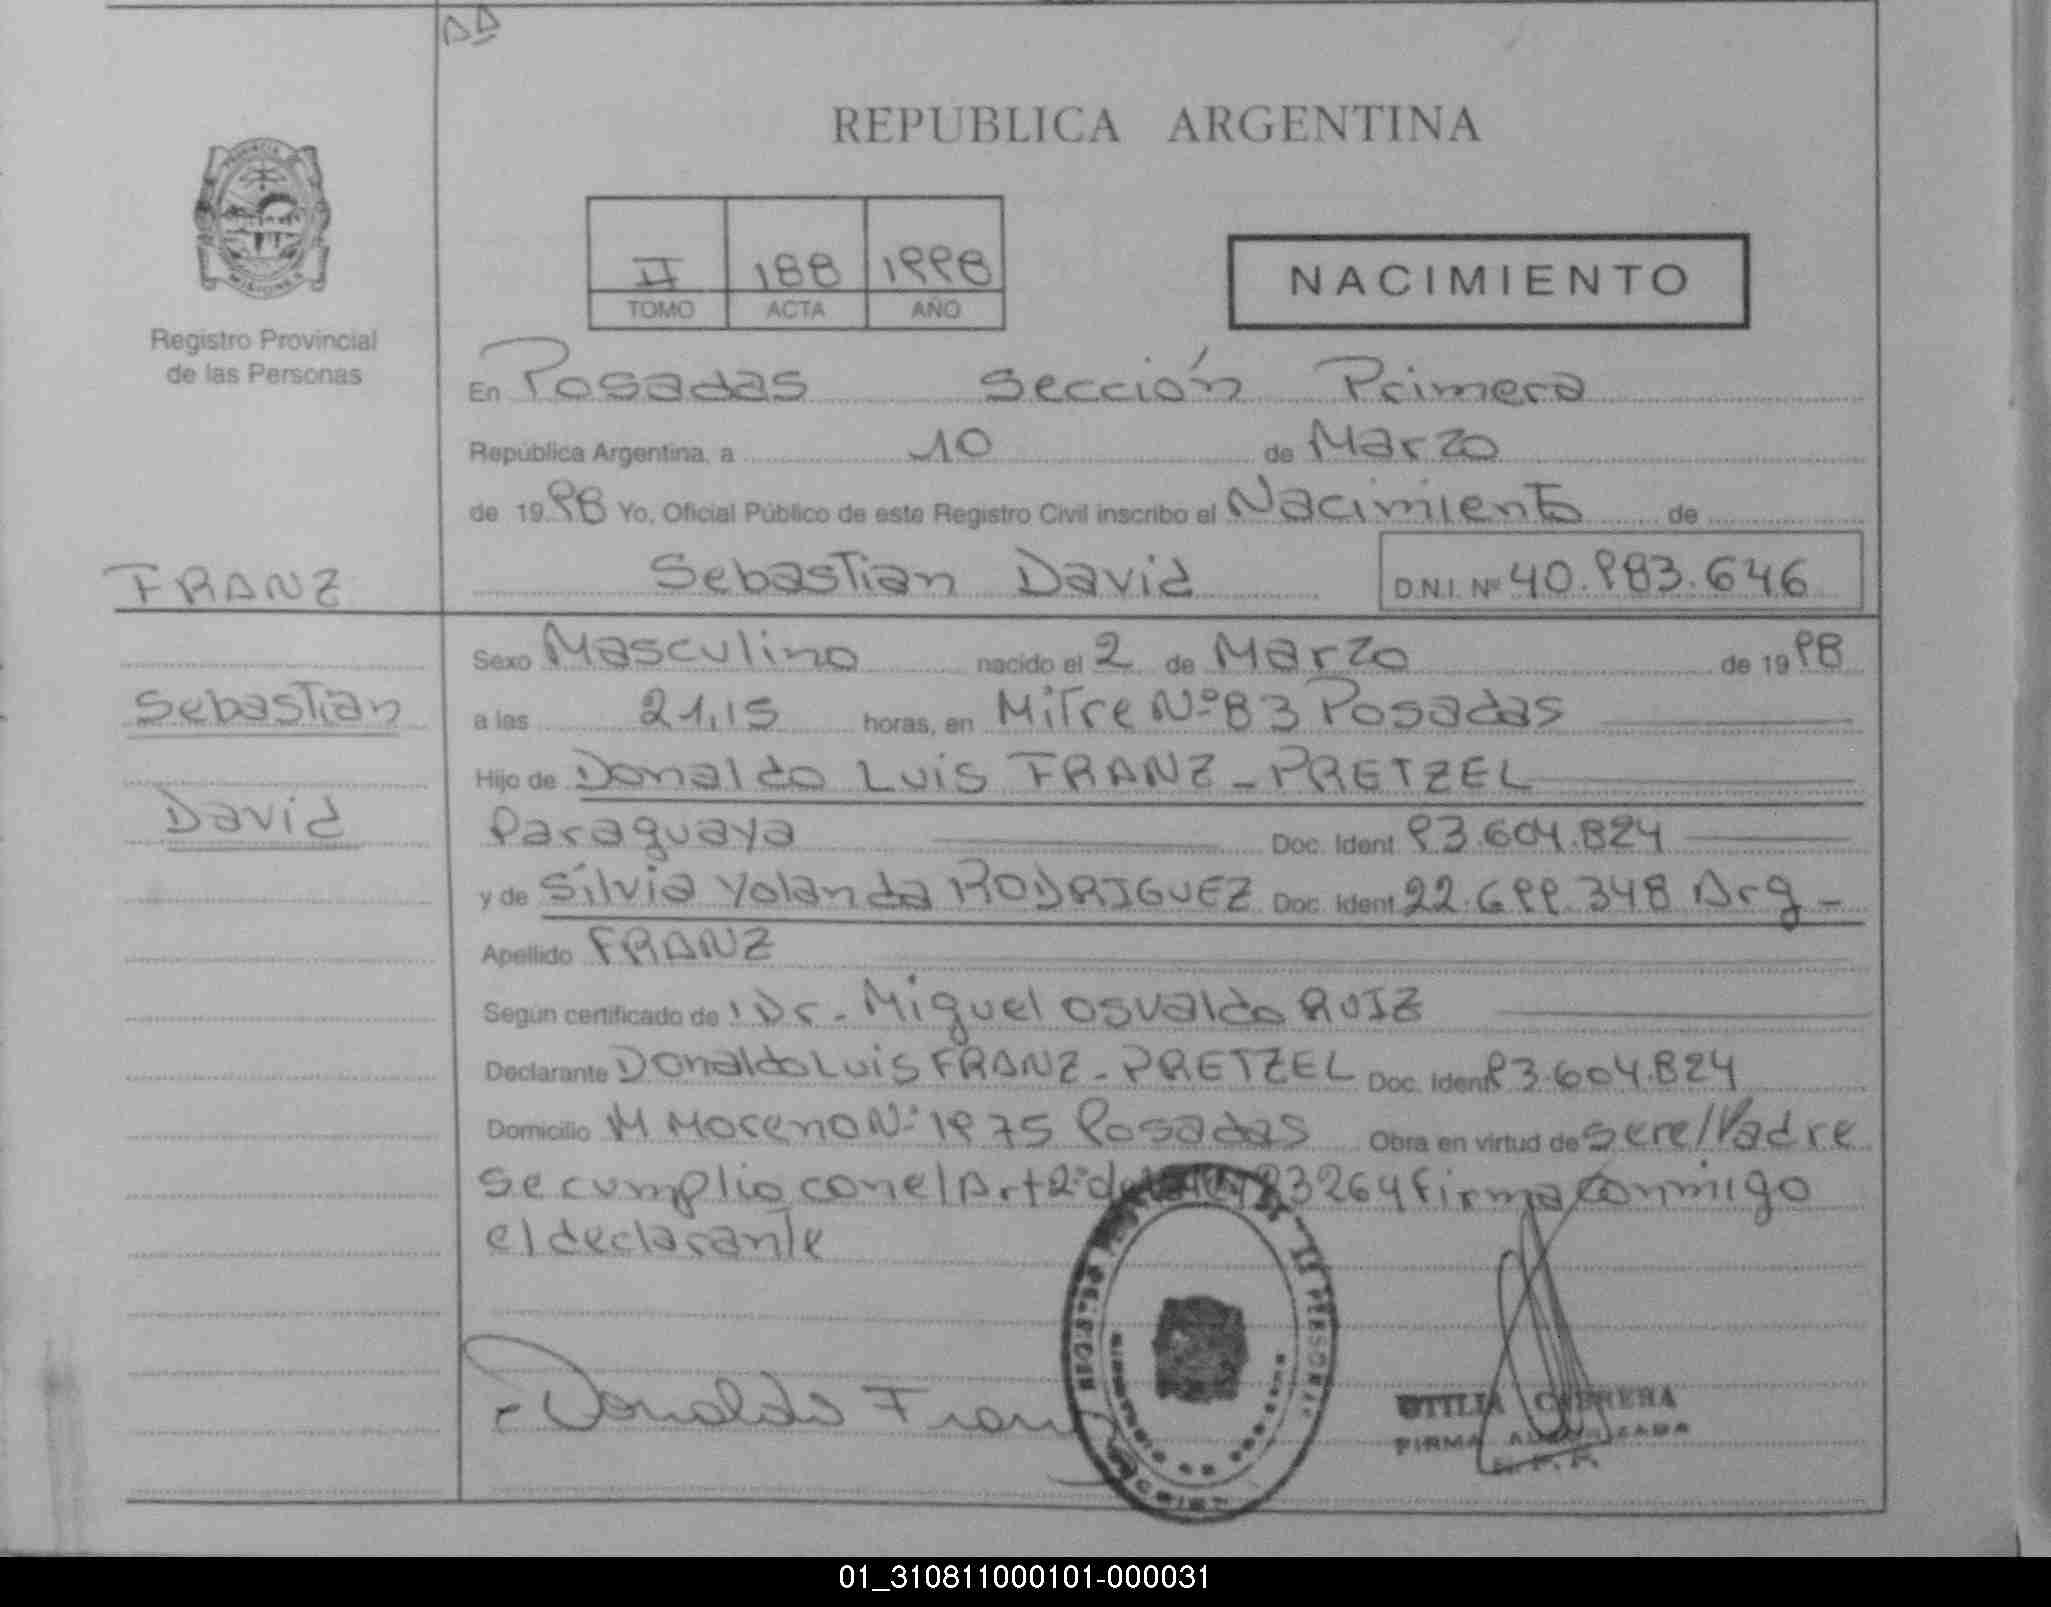 REPUBLICA ARGENTINA
II 188 1998
TOMO ACTA AÑO
NACIMIENTO
Registro Provincial
de las Personas
En Posadas Sección Primera
República Argentina, a 10 de Marzo
de 1998 Yo, Oficial Público de este Registro Civil inscribo el Nacimiento de
Sebastian David D.N.I. Nº 40.983.646
FRANZ
Sebastian
David
Sexo Masculino nacido el 2 de Marzo de 1998
a las 21,15 horas, en Mitre Nº 83 Posadas
Hijo de Donaldo Luis FRANZ - PRETZEL
Paraguaya Doc. Ident 93.604.824
y de Silvia Yolanda RODRIGUEZ Doc. Ident 22.699.348 Arg -
Apellido FRANZ
Según certificado de Dr. Miguel Osvaldo RUIZ
Declarante Donaldo Luis FRANZ - PRETZEL Doc. Ident 93.604.824
Domicilio M Moreno Nº 1975 Posadas Obra en virtud de ser el Padre
se cumplio con el Art 2º 23264 firma conmigo
el declarante
Donaldo Franz
OTILIA CABRERA
FIRMA AUTORIZADA
01_310811000101-000031